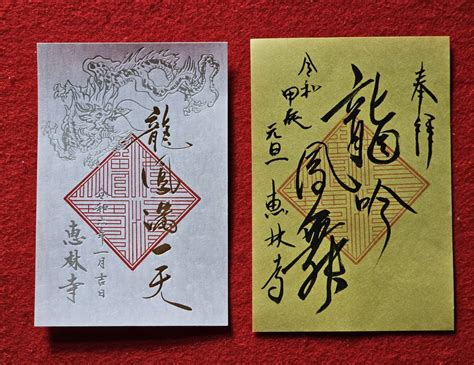 龍鳳満一天
令和六年一月吉日
恵林寺
奉拝
龍吟
鳳舞
令和
甲辰
元旦
恵林寺